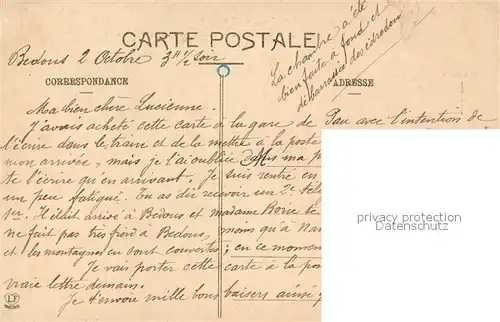 CARTE POSTALE
Bedous 2 Octobre 3h 1/2 soir
La chambre a été
bien faite à fond et
débarrassée des édredons
CORRESPONDANCE
ADRESSE
Ma bien chère Lucienne.
J'avais acheté cette carte à la gare de Pau avec l'intention de
l'écrire dans le train et de la mettre à la poste
mon arrivée, mais je t'ai oubliée ma
te l'écrire qu'en arrivant. Je suis rentré en
un peu fatigué. Tu as dû recevoir un 2e
1er. Il était arrivé à Bedous et madame
ne fait pas très froid à Bedous, moins qu'à
et les montagnes en sont couvertes; en ce momen
Je vais porter cette carte à la po
vraie lettre demain.
Je t'envoie mille bons baisers ainsi
privacy protection
watermark
LF